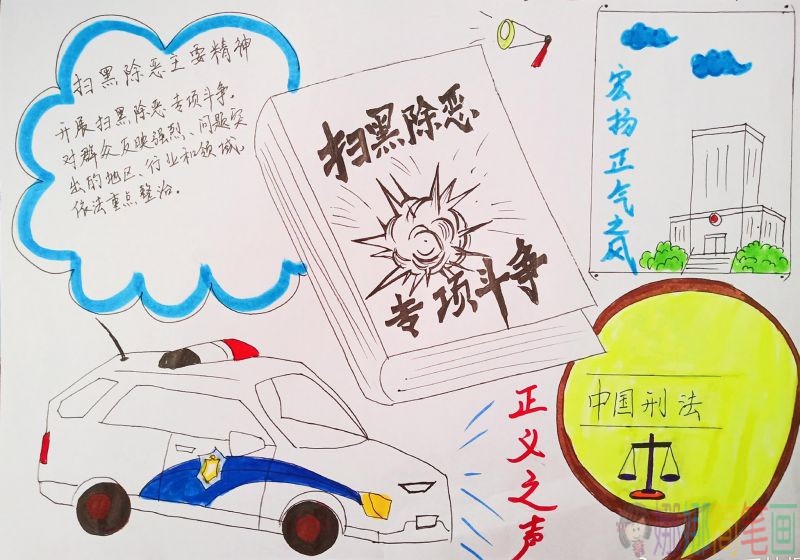 扫黑除恶主要精神
开展扫黑除恶专项斗争.
对群众反映强烈、问题突
出的地区、行业和领域,
依法重点整治.
扫黑除恶
专项斗争
宏扬正气之风
中国刑法
正义之声
娜娜间笔画